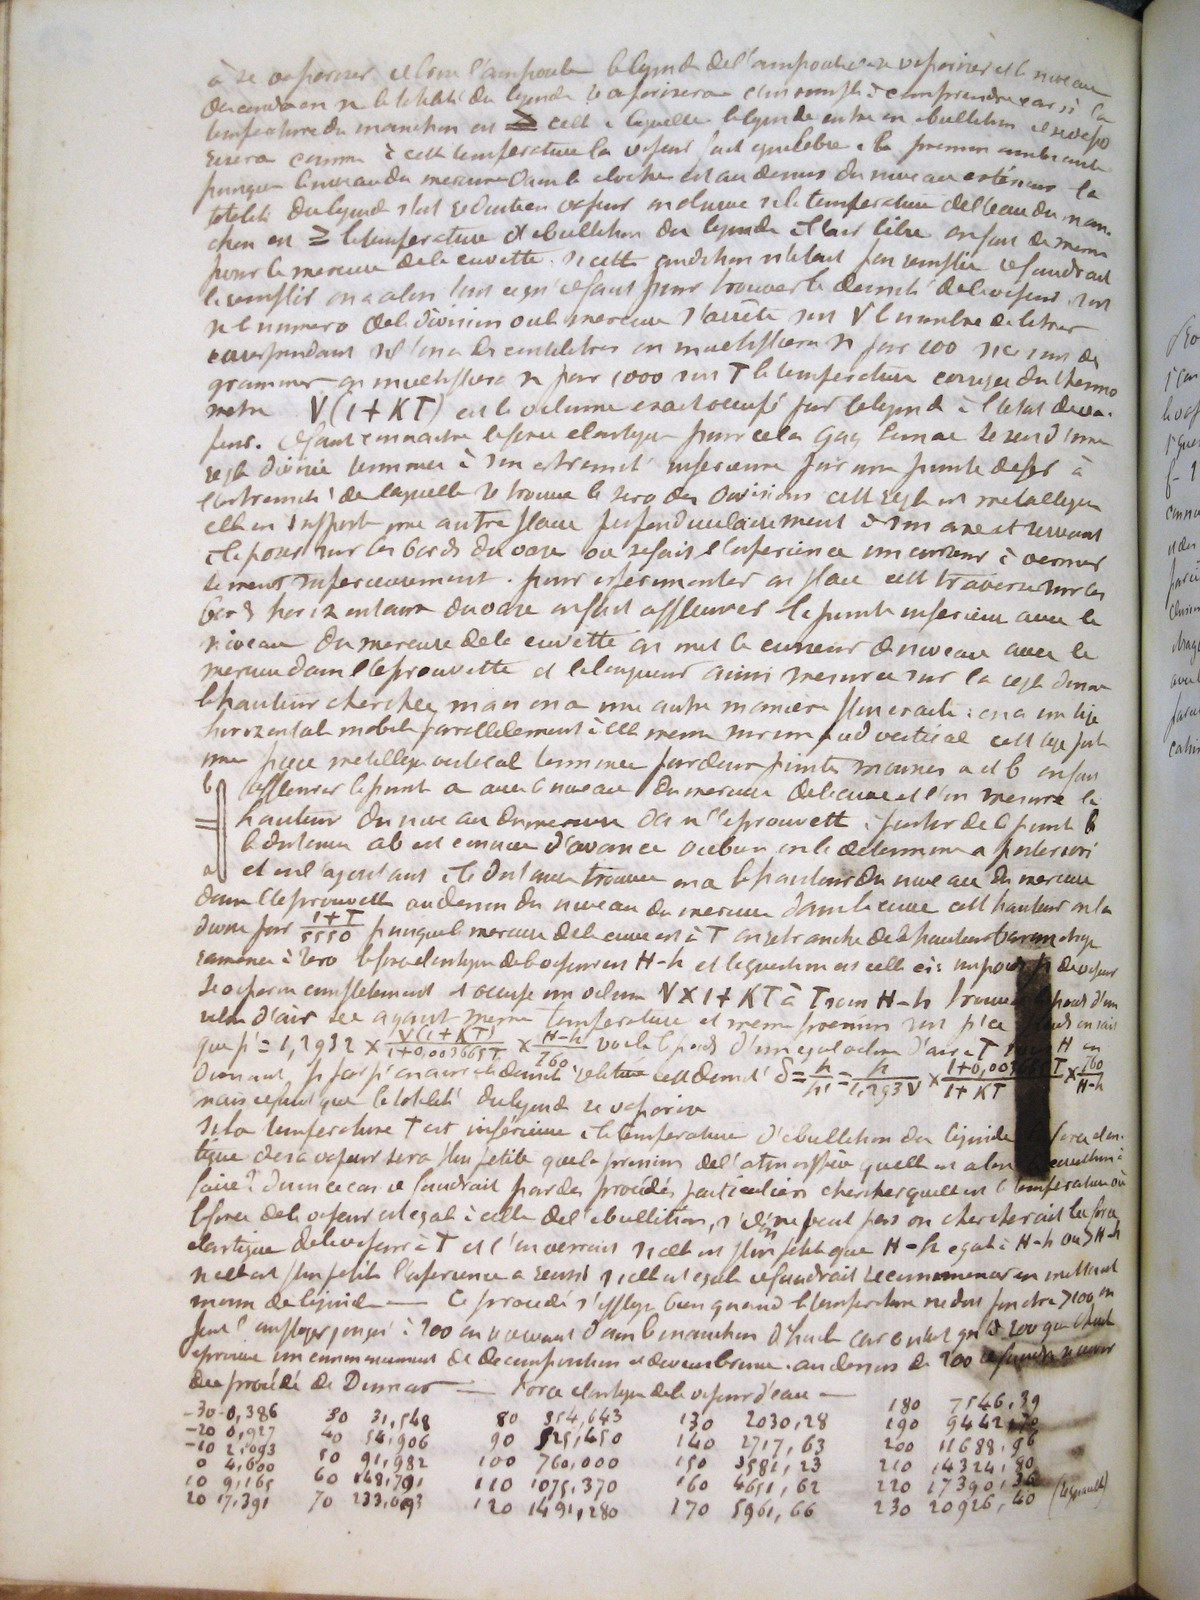 à se vaporiser et brise l'ampoule le liquide de l'ampoule se vaporise et le niveau
descend on a la totalité du liquide se vaporisera c'est simple à comprendre car si la
température du manchon est ≥ celle à laquelle le liquide entre en ébullition il se vapo
risera comme à cette température la vapeur fait équilibre à la pression ambiante
puisque le niveau du mercure dans la cloche est au dessus du niveau extérieur la
totalité du liquide s'est réduite en vapeur on chauffe si la température de l'eau du man-
chon est ≥ la température d'ébullition du liquide à l'air libre on fait de même
pour le mercure de la cuvette. si cette condition n'était pas remplie il faudrait
la remplir on a alors tout ce qu'il faut pour trouver la densité de la vapeur soit
n le numéro de la division où le mercure s'arrête soit V le nombre de litres
correspondant si l'on a des centilitres on multipliera n par 100 si ce sont des
grammes on multipliera n par 1000 soit T la température corrigée du thermo
mètre V(1+KT) est le volume exact occupé par le liquide à l'état de va-
peur. il faut connaître la force élastique pour cela Gay Lussac se sert d'une
règle divisée terminée à son extrémité inférieure par une pointe de fer à
l'extrémité de laquelle se trouve le zéro des divisions cette règle est métallique
elle en supporte une autre placée perpendiculairement à son axe et servant
à la poser sur les bords du vase où se fait l'expérience un curseur à vernier
se meut inférieurement. pour expérimenter on place cette traverse sur les
bords horizontaux du vase on fait affleurer la pointe inférieure avec le
niveau du mercure de la cuvette on met le curseur de niveau avec le
mercure dans l'éprouvette et la longueur ainsi mesurée sur la règle donne
la hauteur cherchée, mais on a une autre manière plus exacte: on a une tige
horizontale mobile parallèlement à elle même sur un pied vertical cette tige porte
une pièce métallique verticale terminée par deux pointes mousses a et b on fait
b affleurer la pointe a avec le niveau du mercure de la cuve et l'on mesure la
hauteur du niveau du mercure dans l'éprouvette à partir de la pointe b
la distance ab est connue d'avance ou bien on la détermine a posteriori
a et en l'ajoutant à la distance trouvée on a la hauteur du niveau du mercure
dans l'éprouvette au dessus du niveau du mercure dans la cuve cette hauteur on la
divise par 1+T/5550 puisque le mercure de la cuve est à T on retranche de la hauteur barométrique
ramenée à zéro la force élastique de la vapeur est H-h et la question est celle ci: un poids p de vapeur
se vaporise complètement et occupe un volume V×1+KT à T sous H-h trouver le poids d'un
volume d'air sec ayant même température et même pression soit p' ce poids on sait
que p' = 1,2932 × V(1+KT)/1+0,003665T × H-h/760 voilà le poids d'un égal volume d'air à T sous H en
divisant p par p' on aura la densité relative cette densité δ = p/p' = p/1,293V × 1+0,003665T/1+KT × 760/H-h
mais il faut que la totalité du liquide se vaporise
Si la température T est inférieure à la température d'ébullition du liquide la force élas-
tique de sa vapeur sera plus petite que la pression de l'atmosphère quelle est alors la condition à
faire? dans ce cas il faudrait par des procédés particuliers chercher quelle est la température où
la force de la vapeur est égale à celle de l'ébullition, si l'on ne peut pas on chercherait la force
élastique de la vapeur à T et l'on verrait si elle est plus petite que H-h égale à H-h ou > H-h
si elle est plus petite l'expérience a réussi si elle est égale il faudrait recommencer en mettant
moins de liquide — Ce procédé s'applique bien quand la température ne doit pas être > 100 on
peut l'employer jusqu'à 200 en se servant dans le manchon d'huile car ce n'est qu'à 200 que l'huile
éprouve un commencement de décomposition et devient brune. au dessus de 200 il faudra se servir
du procédé de Dumas — Force élastique de la vapeur d'eau —
-30 0,386 30 31,548 80 354,643 130 2030,28 180 7546,39
-20 0,927 40 54,906 90 525,450 140 2717,63 190 9442,70
-10 2,093 50 91,982 100 760,000 150 3581,23 200 11688,96
0 4,600 60 148,791 110 1075,370 160 4651,62 210 14324,80
10 9,165 70 233,093 120 1491,280 170 5961,66 220 17390,36
20 17,391 230 20926,40 (Regnault)